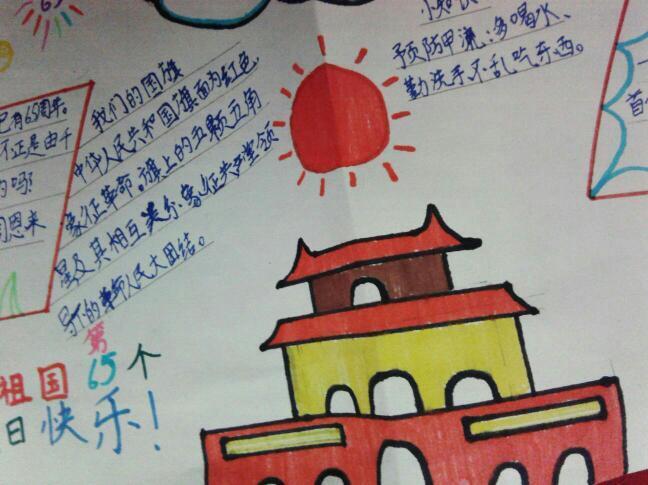 65
小知识
预防甲流:多喝水、
勤洗手不乱吃东西。
已有65周年。
不正是由千
的吗?
周恩来
我们的国旗
中华人民共和国旗面为红色,
象征革命。旗上的五颗五角
星及其相互关系象征共产党领
导下的革命人民大团结。
祖国第65个
日快乐!
一
首